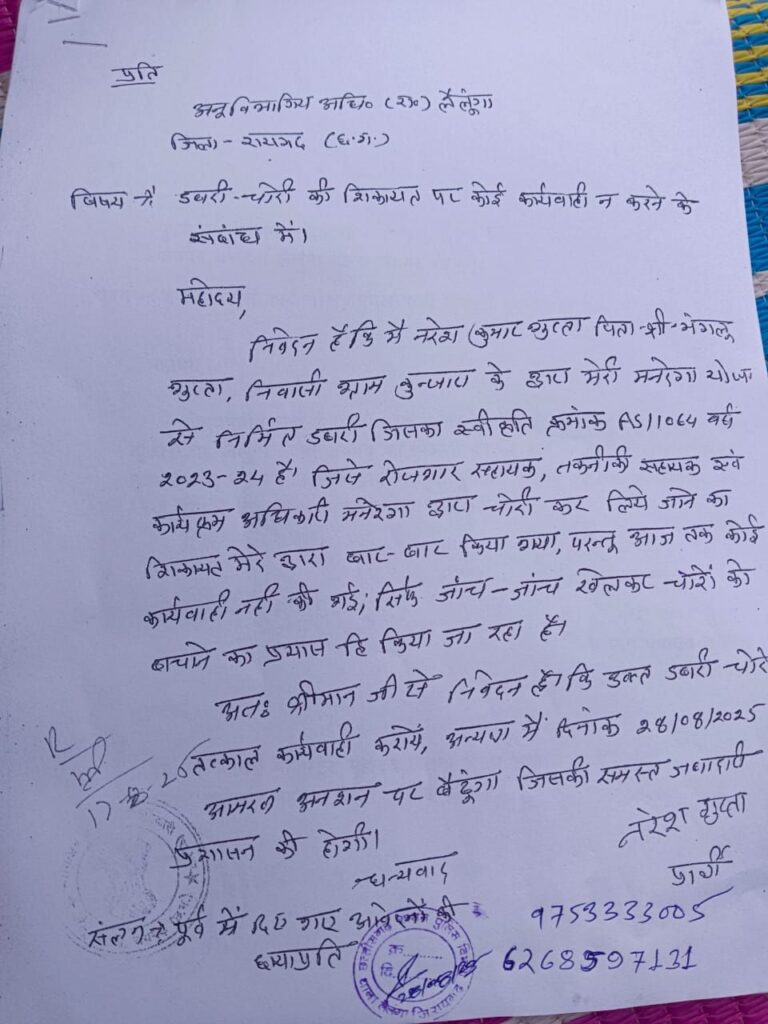 प्रति
अनुविभागिय अधि० (रा०) लैलूंगा
जिला - रायगढ (छ.ग.)
विषय :- डबरी-चोरी की शिकायत पर कोई कार्यवाही न करने के
संबंध में।
महोदय,
निवेदन है कि मै नरेश कुमार गुप्ता पिता श्री मंगलू
गुप्ता, निवासी ग्राम कुन्जारा के द्वारा मेरी मनरेगा योजना
से निर्मित डबरी जिसका स्वीकृति क्रमांक AS/1064 वर्ष
2023-24 है। जिसे रोजगार सहायक, तकनीकी सहायक एवं
कार्यक्रम अधिकारी मनरेगा द्वारा चोरी कर लिये जाने का
शिकायत मेरे द्वारा बार-बार किया गया, परन्तु आज तक कोई
कार्यवाही नही की गई; सिर्फ जांच-जांच खेलकर चोरों को
बचाने का प्रयास हि किया जा रहा है।
अतः श्रीमान जी से निवेदन है कि उक्त डबरी-चोरी
तत्काल कार्यवाही करायें, अन्यथा मैं दिनांक 28/08/2025
आमरण अनशन पर बैठूंगा जिसकी समस्त जवाबदारी
प्रशासन की होगी।
धन्यवाद
नरेश गुप्ता
प्रार्थी
9753333005
6268597131
संलग्न :- पूर्व में दिए गए आवेदनों की
छायाप्रति